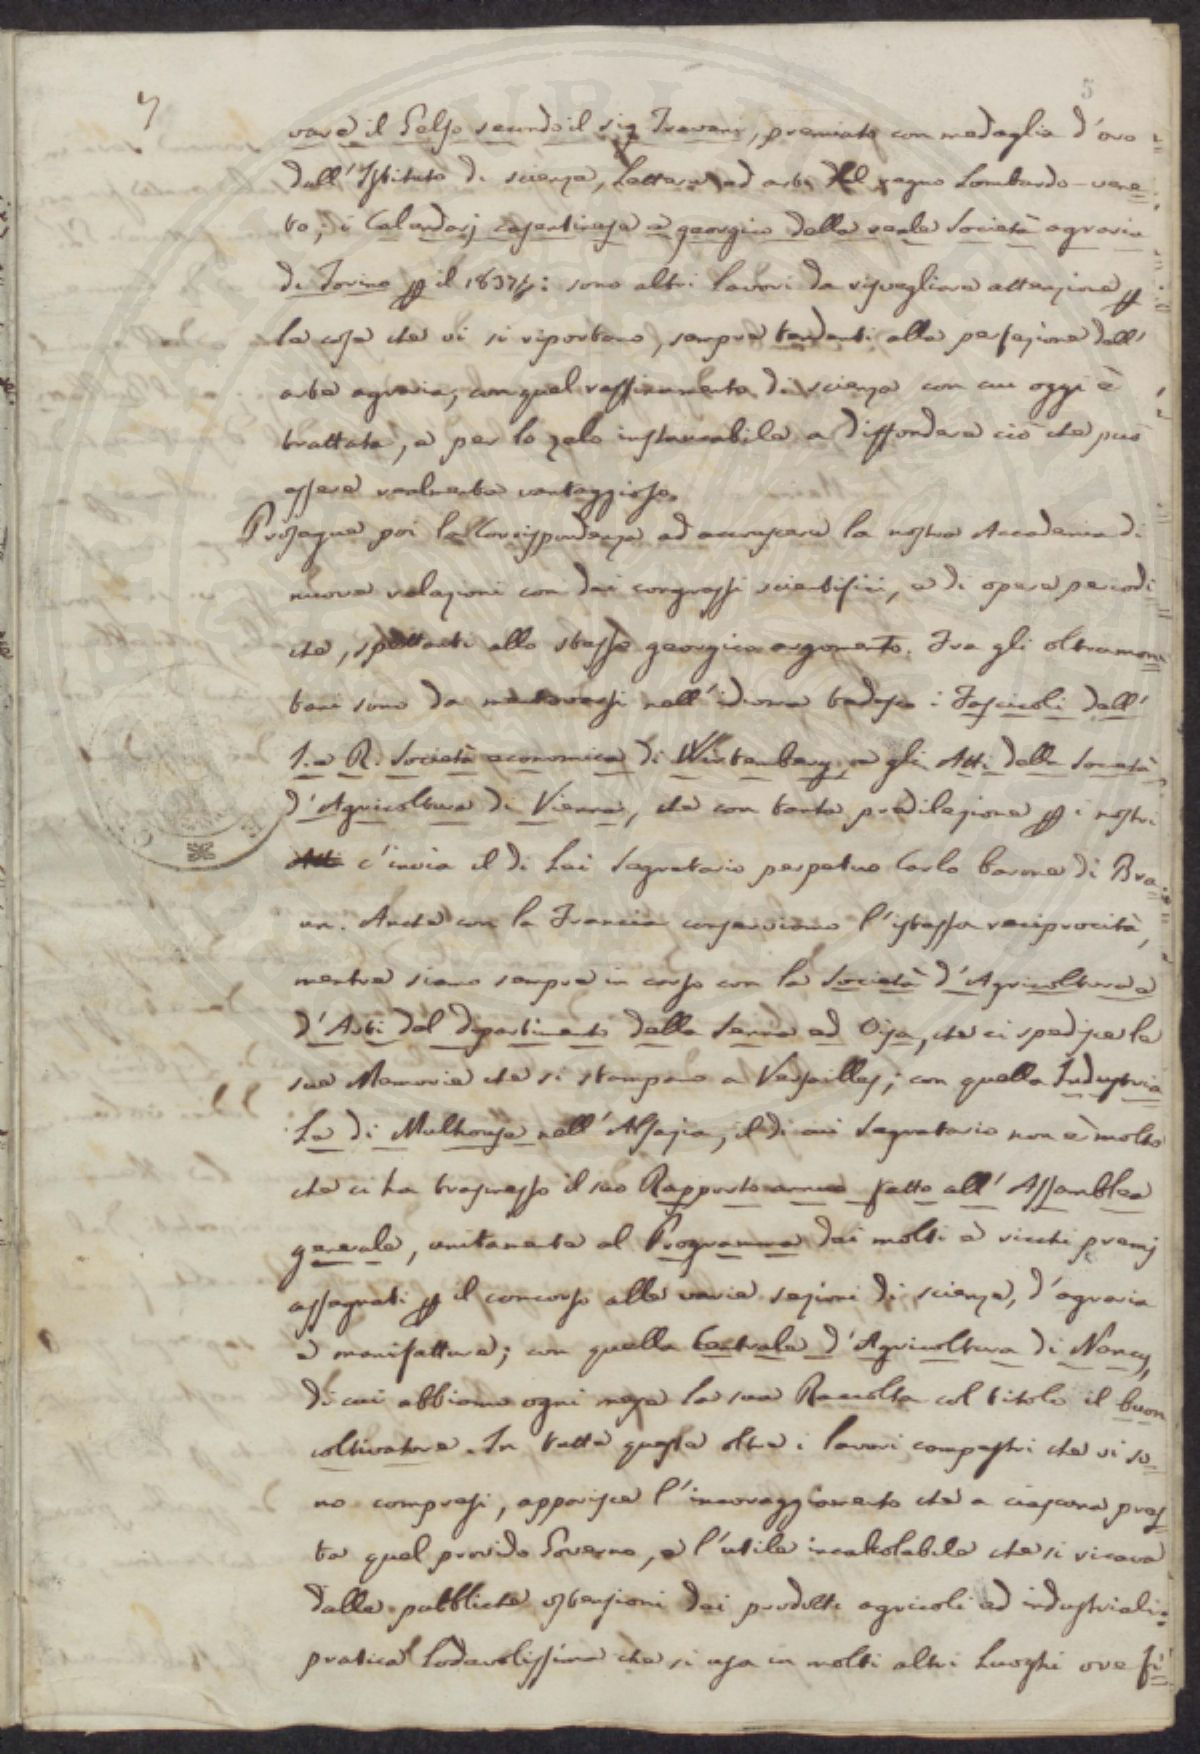 5
vare il Gelso secondo il sig Trevani, premiato con medaglia d'oro
dall'Istituto di scienze, Lettere ed arti del regno Lombardo-vene=
to; i Calendarj casentinese e georgico della reale Società agraria
di Torino p il 1837: sono altri lavori da risvegliare attenzione p
le cose che vi si riportano, sempre tendenti alla perfezione dell'
arte agraria, con quel raffinamento di scienza con cui oggi è
trattata, e per lo zelo instancabile a diffondere ciò che può
essere realmente vantaggioso.
Prosegue poi la Corrispondenza ad accrescere la nostra Accademia di
nuove relazioni con dei congressi scientifici, e di opere periodi
che, spettanti allo stesso georgico argomento. Fra gli oltramon=
tani sono da mentovarsi nell'idioma tedesco i Fascicoli dell'
I. e R. Società economica di Wirtemberg, e gli Atti della Società
d'Agricoltura di Vienna, che con tanta predilezione p i nostri
Atti c'invia il di Lei Segretario perpetuo Carlo barone di Bra=
un. Anche con la Francia conserviamo l'istessa reciprocità,
mentre siamo sempre in corso con la Società d'Agricoltura e
d'Arti del dipartimento della Senna ed Oisa, che ci spedisce le
sue Memorie che si stampano a Versailles; con quella Industria
Le di Mulhouse nell'Alsazia, il di cui Segretario non è molto
che ci ha trasmesso il suo Rapporto annuo fatto all'Assemblea
generale, unitamente al Programma dei molti e ricchi premj
assegnati p il concorso alle varie sezioni di scienze, d'agraria
e manifatture; con quella Centrale d'Agricoltura di Nancy,
di cui abbiamo ogni mese la sua Raccolta col titolo il buon
coltivatore. In tutte queste oltre i lavori campestri che vi so=
no compresi, apparisce l'incoraggiamento che a ciascuna pres=
ta quel provido Governo, e l'utile incalcolabile che si ricava
dalle pubbliche ostensioni dei prodotti agricoli ed industriali:
pratica Lodevolissima che si usa in molti altri Luoghi ove fi=